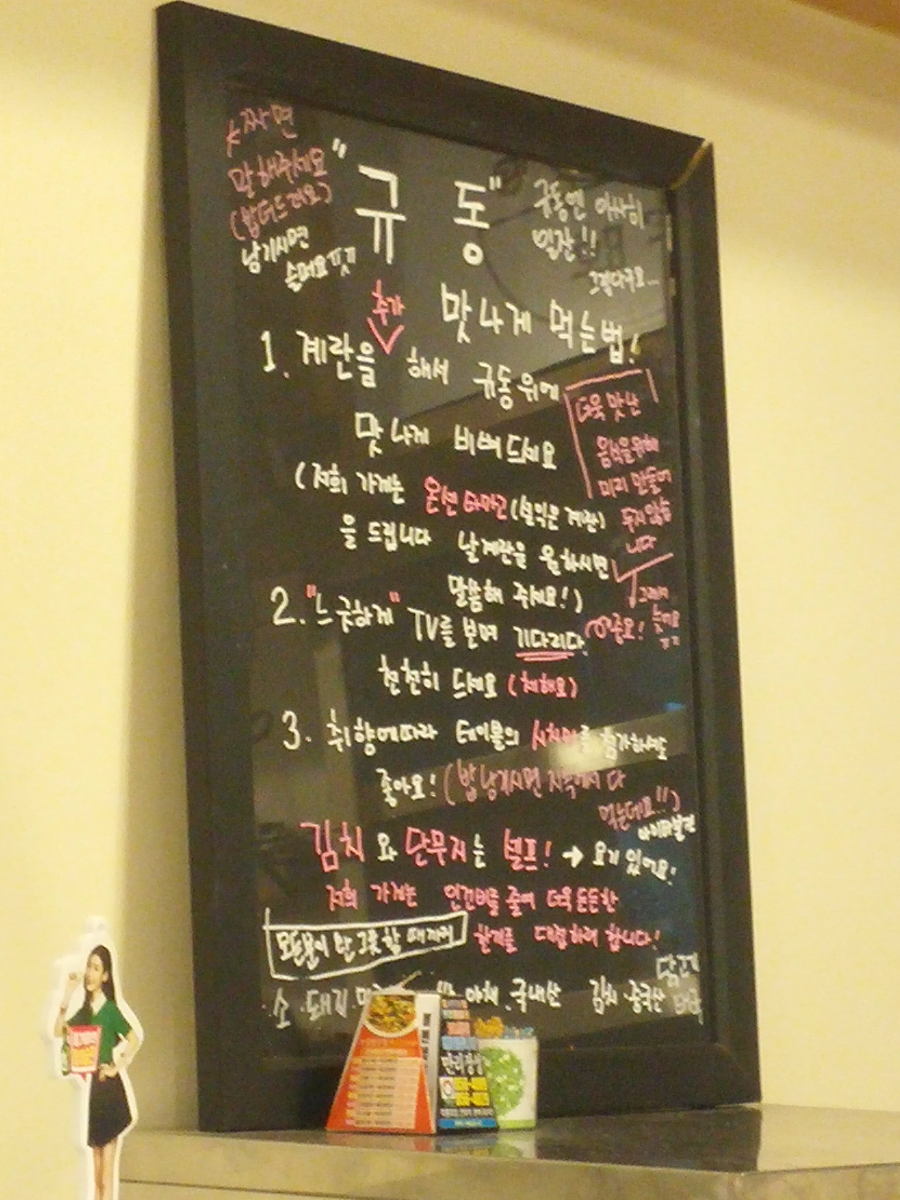 짜면
말해주세요
(밥더드려요)
남기시면
슬퍼요
"규동"
규동엔 아사히
일잔!!
그렇다구요...
맛나게 먹는법!
1. 계란을 추가 해서 규동위에
맛나게 비벼드세요
(저희 가게는 온센타마고(설익은 계란)
을 드립니다 날계란을 원하시면
말씀해 주세요!)
더욱 맛난
음식을위해
미리 만들어
두지 않습
니다
2. "느긋하게" TV를 보며 기다리다
천천히 드세요 (체해요)
3. 취향에따라 테이블의 시치미를 첨가하셔도
좋아요! (밥남기시면 지옥에서 다
먹는데요!!)
김치 와 단무지는 셀프! → 요기 있어요!
저희 가게는 인건비를 줄여 더욱 든든한
한끼를 대접하려 합니다!
소·돼지 야채 국내산 김치 중국산